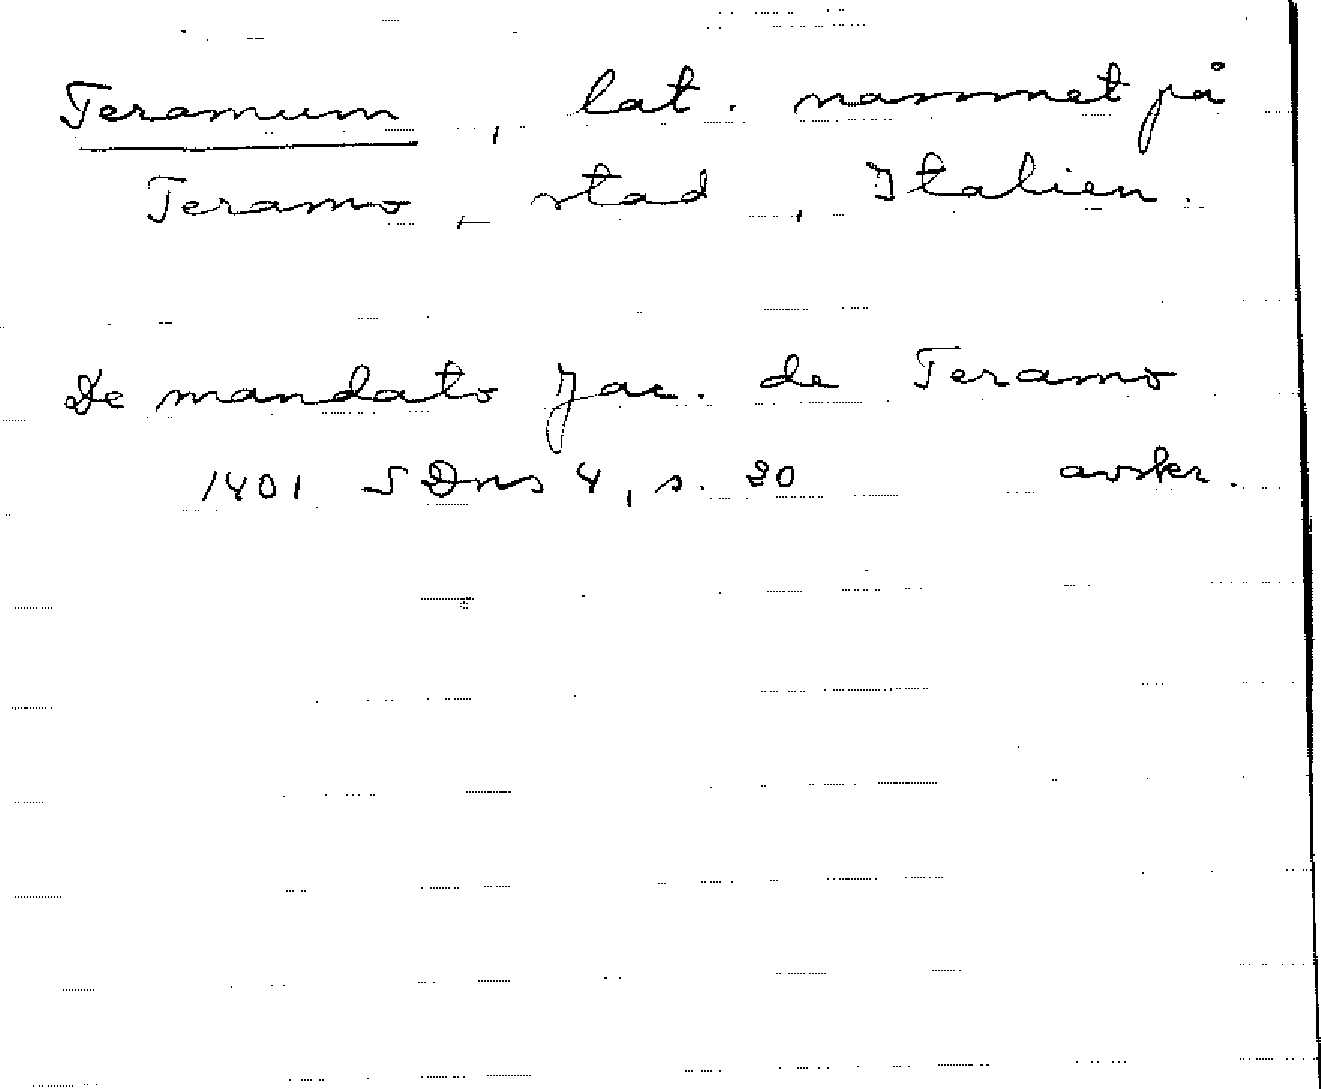 Teramum, lat. namnet på
Teramo, stad, Italien.
De mandato Jac. de Teramo
1401 SDns 4, s. 20 avskr.